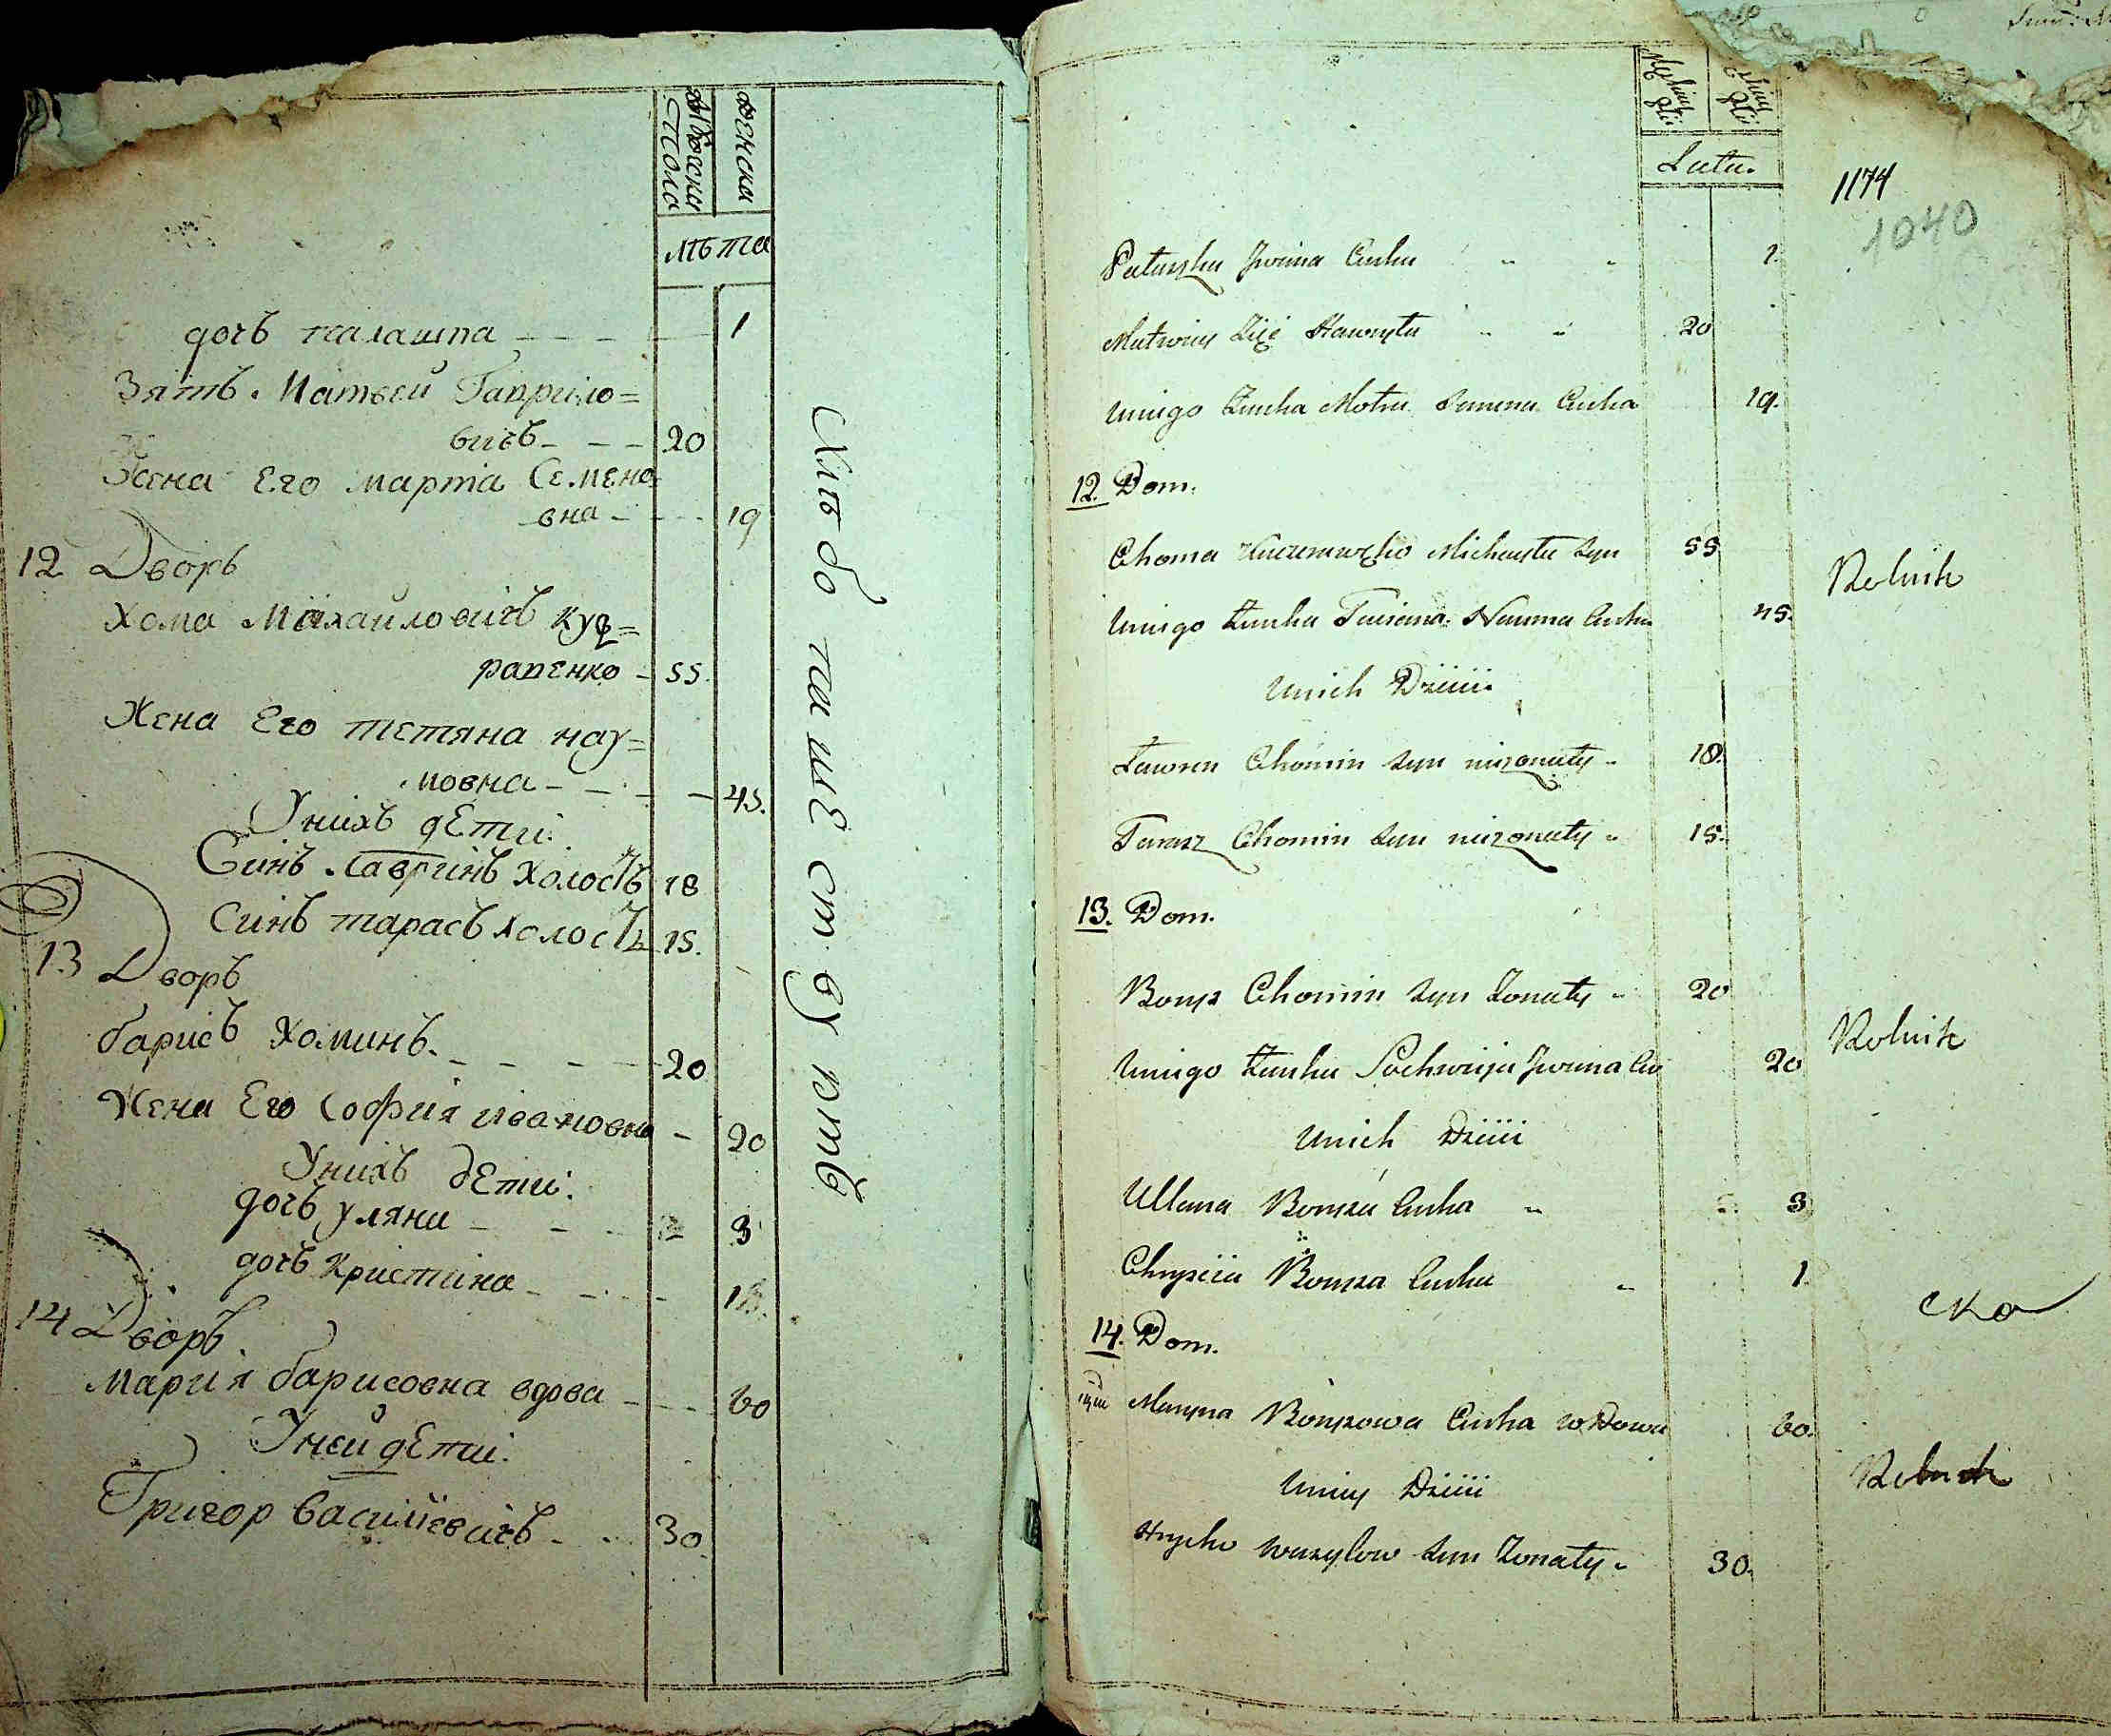 Мужеска
Пола
Женска
Лѣта
дочъ палашка 1
Зятъ Матвей Гаврило=
вичъ 20
Жена Его марта Семено
вна 19
12 Дворъ
Хома Михайловичъ куч=
ранЕнко 55.
Жена Его тЕтяна нау=
мовна 45.
Унихъ дЕти:
Синъ Лавринъ холостъ 18
Синъ тарасъ холостъ 15.
13 Дворъ
барисъ Хоминъ 20
Жена Его София ивановна 20
Унихъ дЕти:
дочъ уляна 3
дочъ кристина
14 Дворъ
Мария барисовна вдова 60
УнЕй дЕти:
Григор василиевичъ 30.
Хлѣбопаш Ествуютъ
Lata.
1174
1040
Iwana Curka
Matwiy Zięć Hawryła 20
Uniego Zunka Motra Semena Curka 19.
12. Dom.
Choma Michayła Syn 55
Rolnik
Unigo Zunka Taciana Nauma Curka 45.
Unich Dziiii
Ławren Chomin Syn niżonaty 18.
Tarasz Chomin Syn niżonaty 15.
13. Dom.
Borys Chomin Syn Zonaty 20
Rolnik
Unigo Zunka Sochwija Iwana Cu 20
Unich Dziiii
Ullana Borysa Curka 3
Chrysiia Borysa Curka 1.
ско
14. Dom.
Maryna Borysowa Curka wDowa 60.
Uniiy Dziiii
Rolnik
Hrycko Wasylow Syn Zonaty 30.